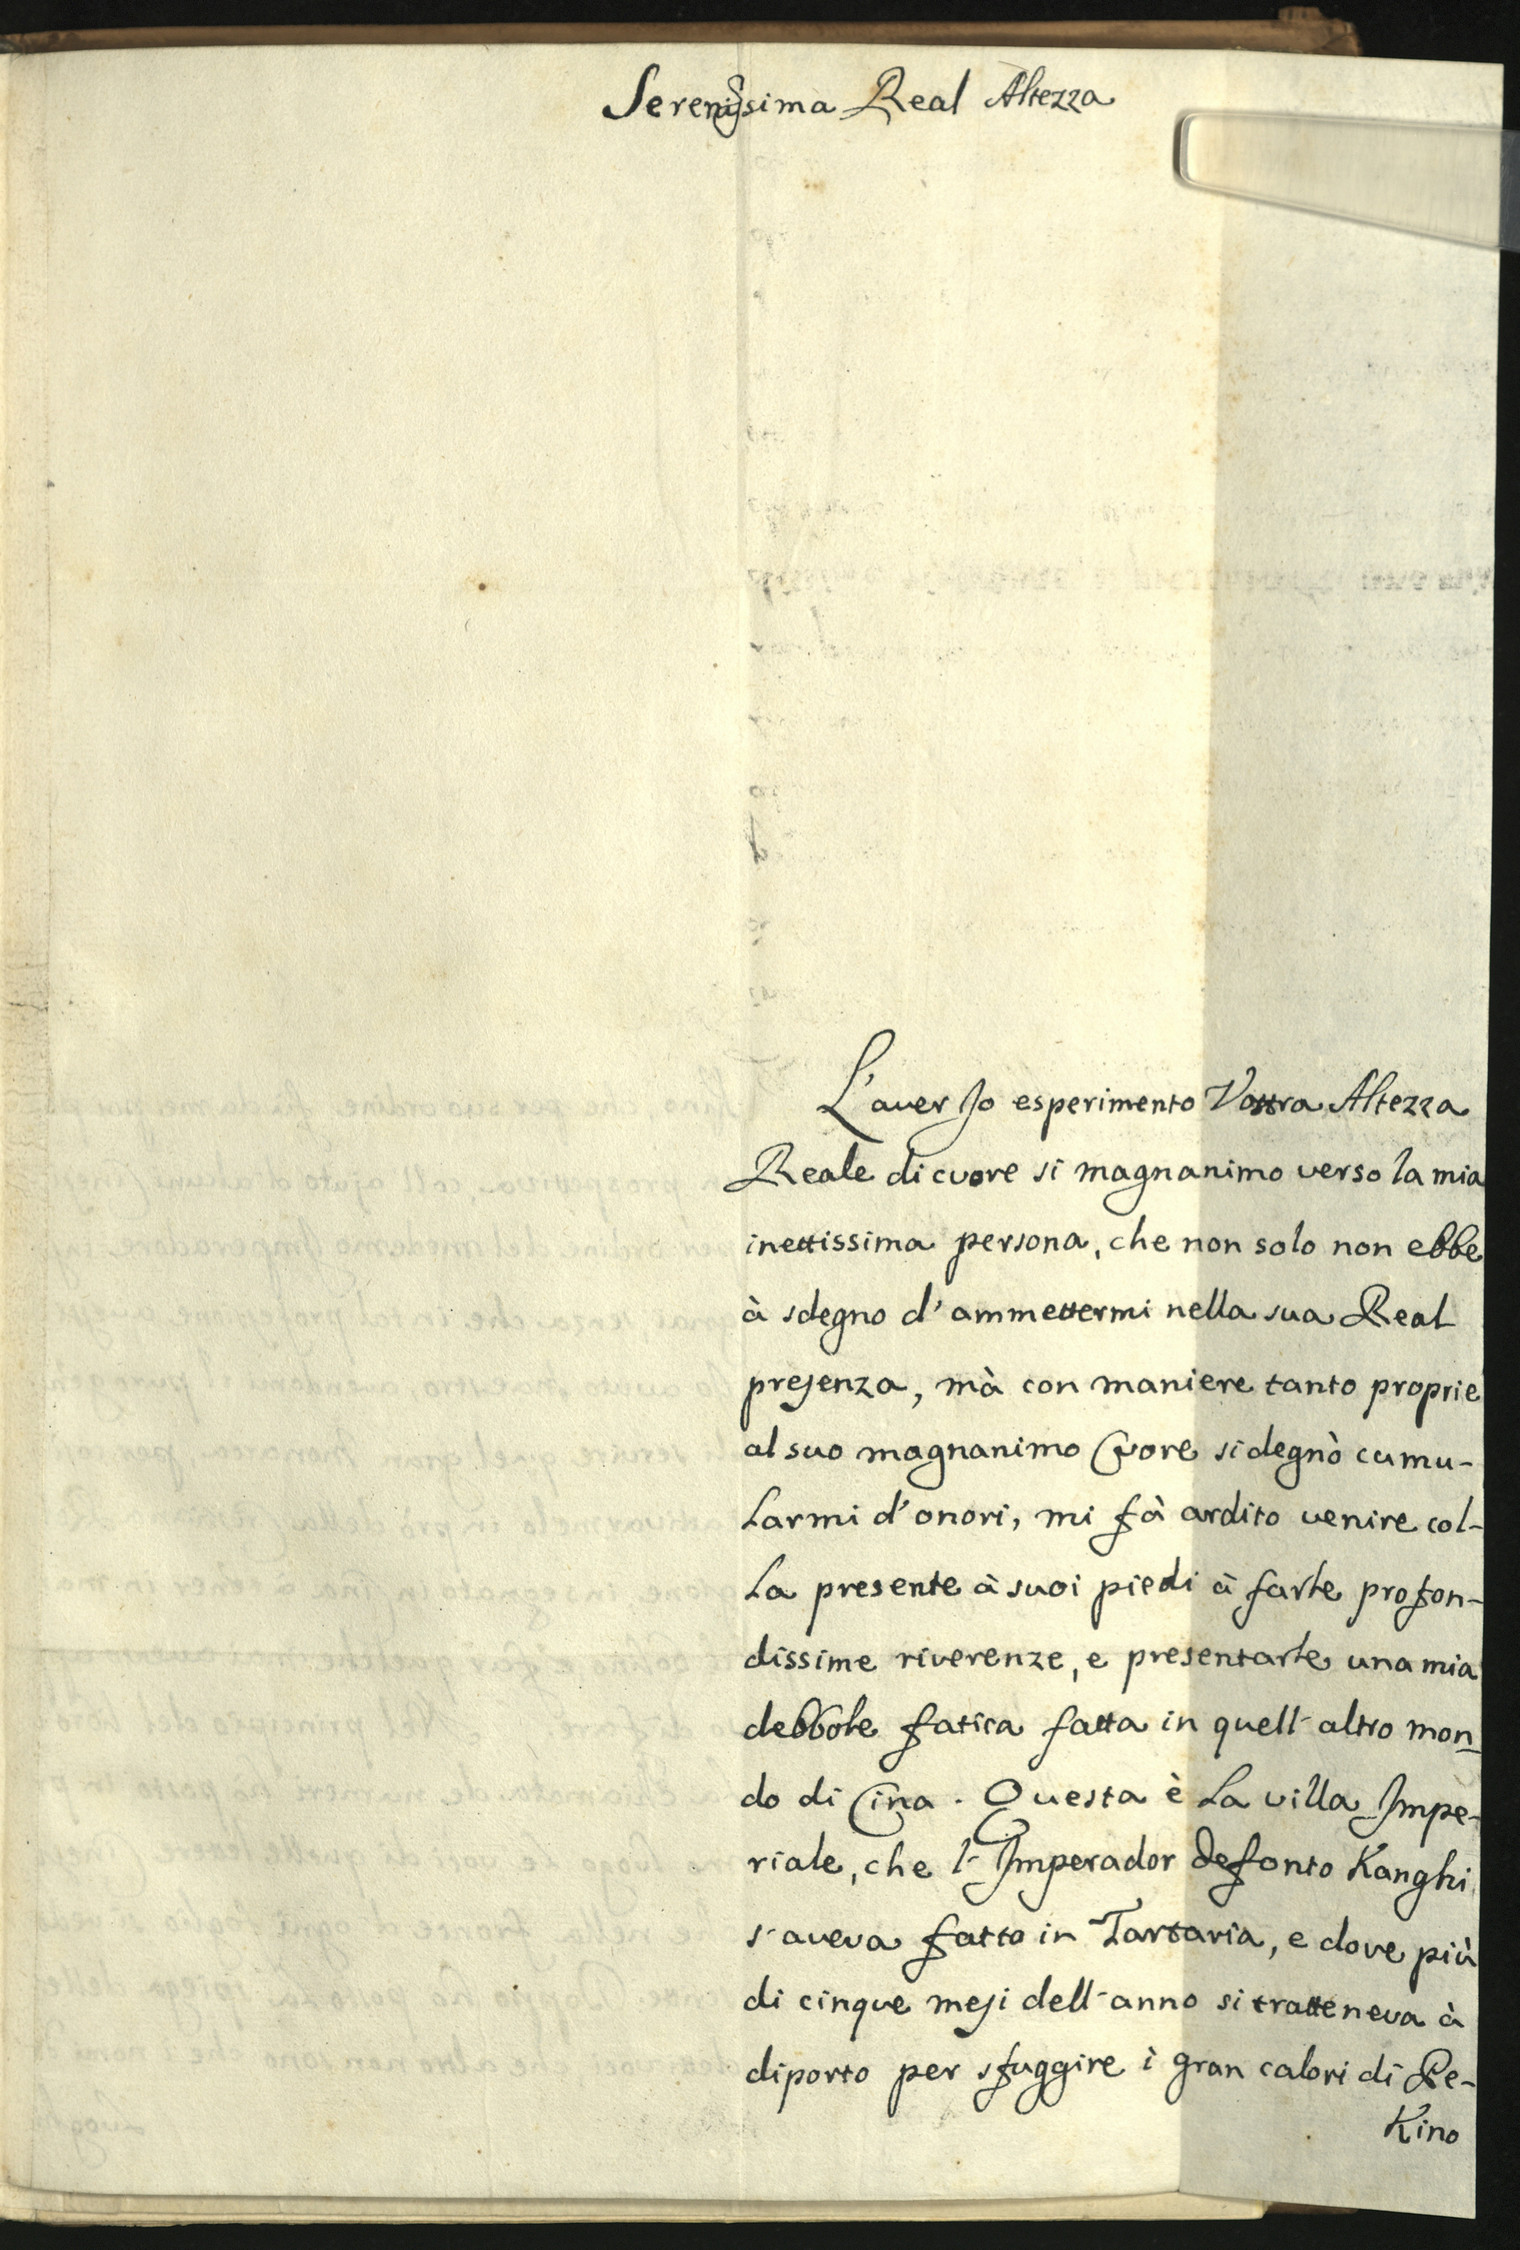 Serenissima Real Altezza
L'aver Jo esperimento Vostra Altezza
Reale di cuore si magnanimo verso la mia
inettissima persona, che non solo non ebbe
à sdegno d'ammettermi nella sua Real
presenza, mà con maniere tanto proprie
al suo magnanimo Cuore si degnò cumu-
larmi d'onori, mi fà ardito venire col-
la presente à suoi piedi à farle profon-
dissime riverenze, e presentarle una mia
debbole fatica fatta in quell'altro mon-
do di Cina. Questa è la villa Impe-
riale, che l'Imperador defonto Kanghi
s'aveva fatto in Tartaria, e dove più
di cinque mesi dell'anno si tratteneva à
diporto per sfuggire i gran calori di Pe-
Kino